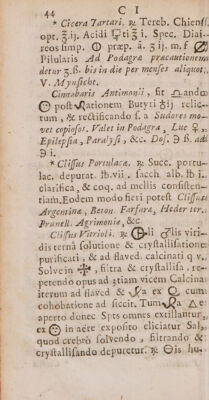 44 C I
* Cicera Tartari. ℞ Tereb. Chiens
opt. ʒ ij. Acidi ʒ i. Spec. Diai-
reos simp. præp. a. ʒ ij. m. f
Pilularis Ad Podagra præcautionem
detur ʒ ß. bis in die per menses aliquot.
V. Mynsicht.
Cinnabaris Antimonii, fit
post rationem Butyri ʒ ij relic-
tum, & rectificando s. a Sudores mo-
vet copiosos. Valet in Podagra, Lue ♀,
Epilepsia, Paralysi, &c. Dos. ß. ad
i.
* Clissus Portulacæ. ℞ Succ. portu-
lac. depurat. ℔ vii. sacch alb. ℔ i.
clarifica, & coq. ad mellis consisten-
tiam. Eodem modo fieri potest Clissus
Argentinæ, Beton. Farfaræ, Heder ter.
Prunell. Agrimoniæ, &c.
Clissus Vitrioli. ℞ li lis viri-
dis ternâ solutione & crystallisatione
purificati, & ad flaved. calcinati q v.
Solve in , filtra & crystallisa, re-
petendo opus ad tiam vicem Calcina
iterum ad flaved & a ex cum
cohobatione ad siccit. Tum a e
aperto donec Spts omnes extillantur,
ex in aëre exposito eliciatur Sal,
quod crebrò solvendo , filtrando &
crystallisando depuretur. ℞ is hu-